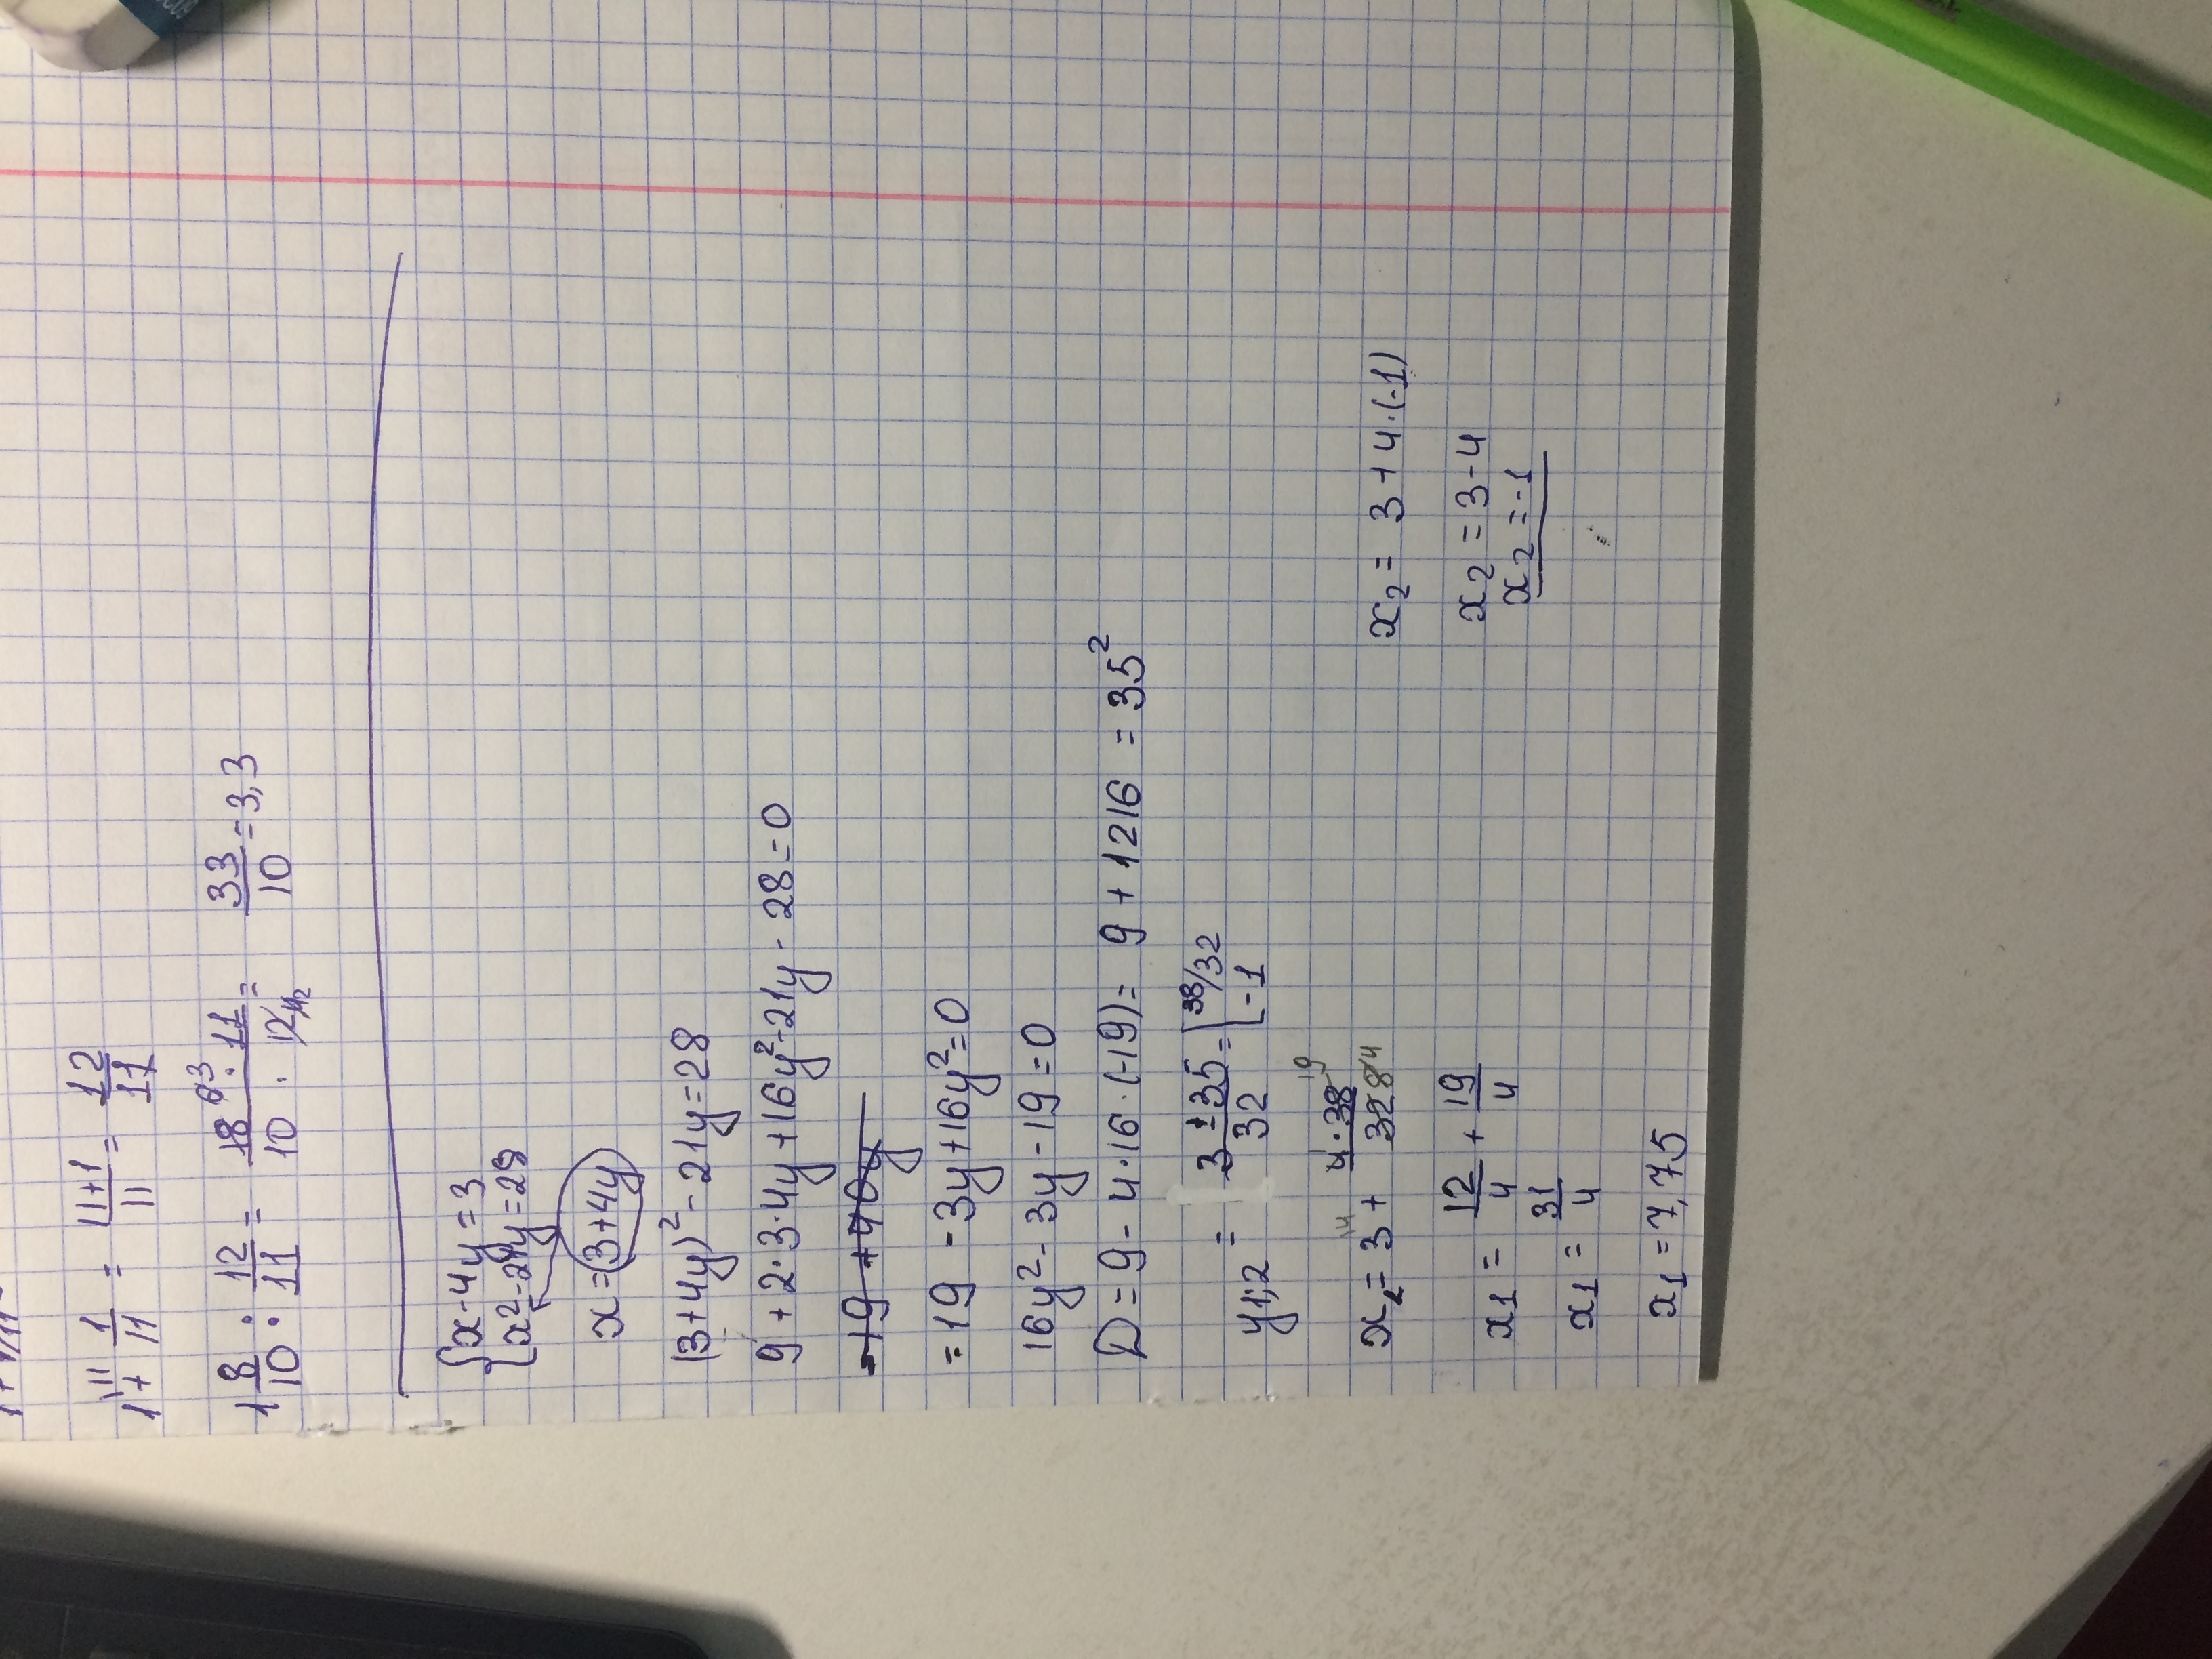 1 + 1/11 = 11+1/11 = 12/11
1 8/10 : 12/11 = 18 · 11/10 · 12 = 33/10 = 3,3
{x-4y=3
{x²-21y=28
x=(3+4y)
(3+4y)²-21y=28
9+2·3·4y+16y²-21y-28=0
-19+
=19-3y+16y²=0
16y²-3y-19=0
D=9-4·16·(-19)= 9+1216 =35²
y1;2 = 3±35/32 = [38/32
[-1
x₂=3+ 4·38/32 8
x₁= 12/4 + 19/4
x₁= 31/4
x₁=7,75
x₂= 3+4·(-1)
x₂=3-4
x₂=-1